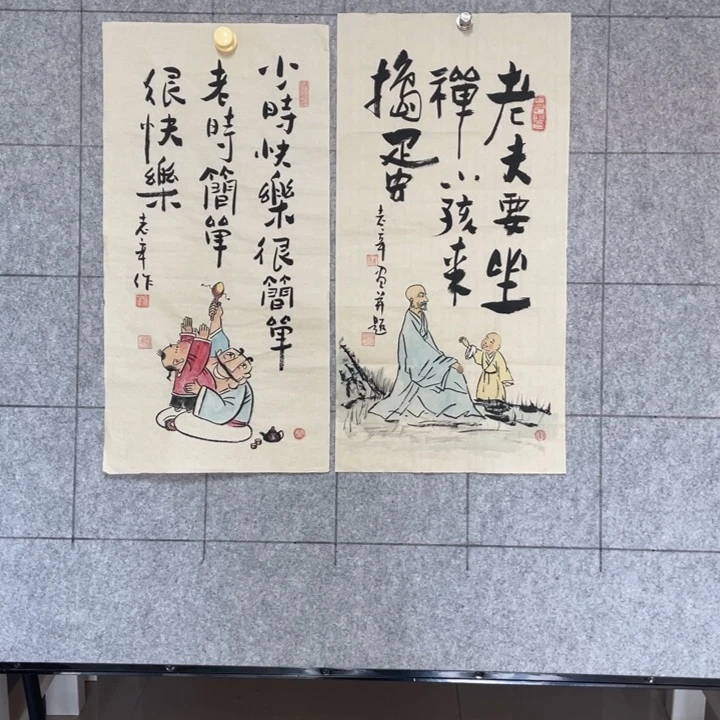 小時快樂很簡單
老時簡單
很快樂
老章作
老夫要坐
禪小孩来
搗蛋
老章画并题